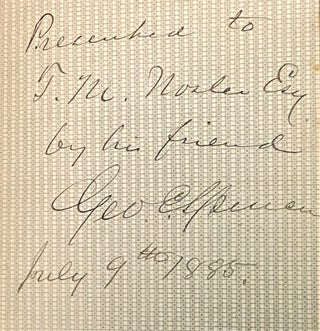 Presented to
T. M. Nosler Esq
by his friend
Geo. E.
July 9th 1885.